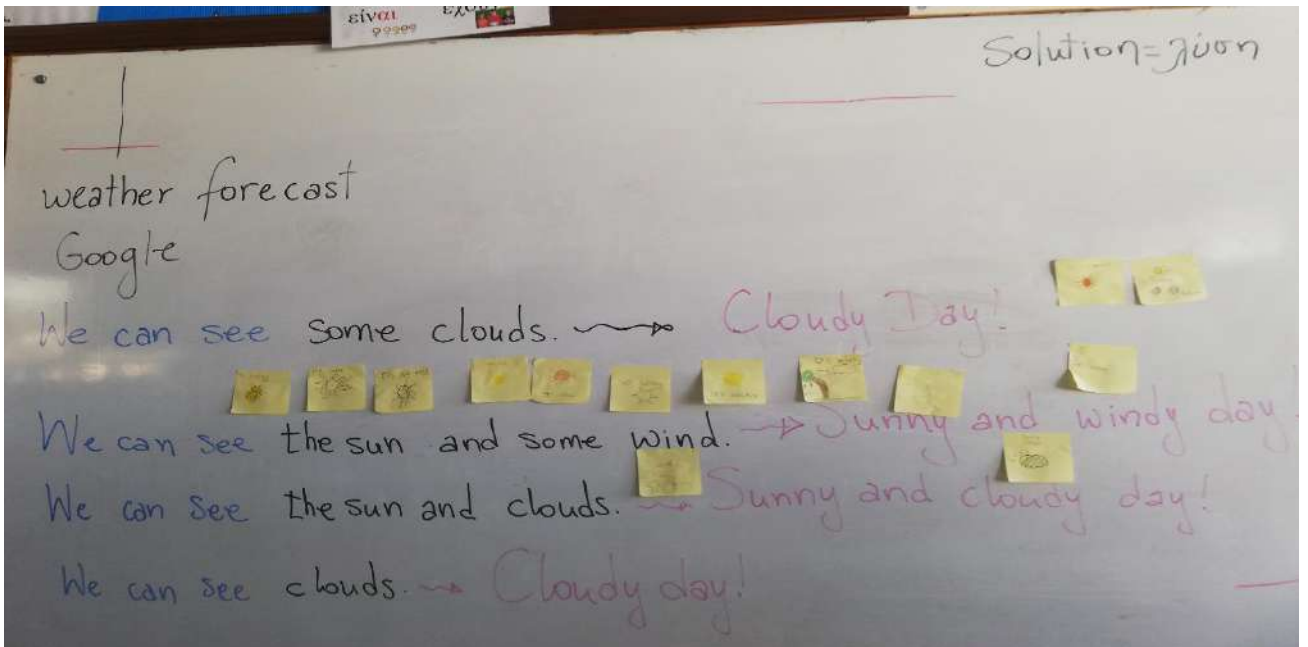 είναι
Solution=λύση
weather forecast
Google
We can see some clouds. → Cloudy Day!
We can see the sun and some wind. → Sunny and windy day!
We can see the sun and clouds. → Sunny and cloudy day!
We can see clouds. → Cloudy day!